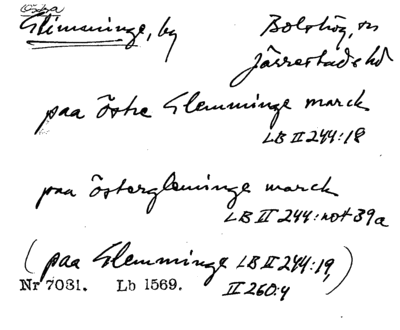 Östra
Glimminge, by Bolshög, sn
Järrestads hd
paa östre Glemminge marck
LB II 244:18
paa östergleminge marck
LB II 244: not 39a
(paa Glemminge LB II 244:19,
II 260:4)
Nr 7031. Lb 1569.